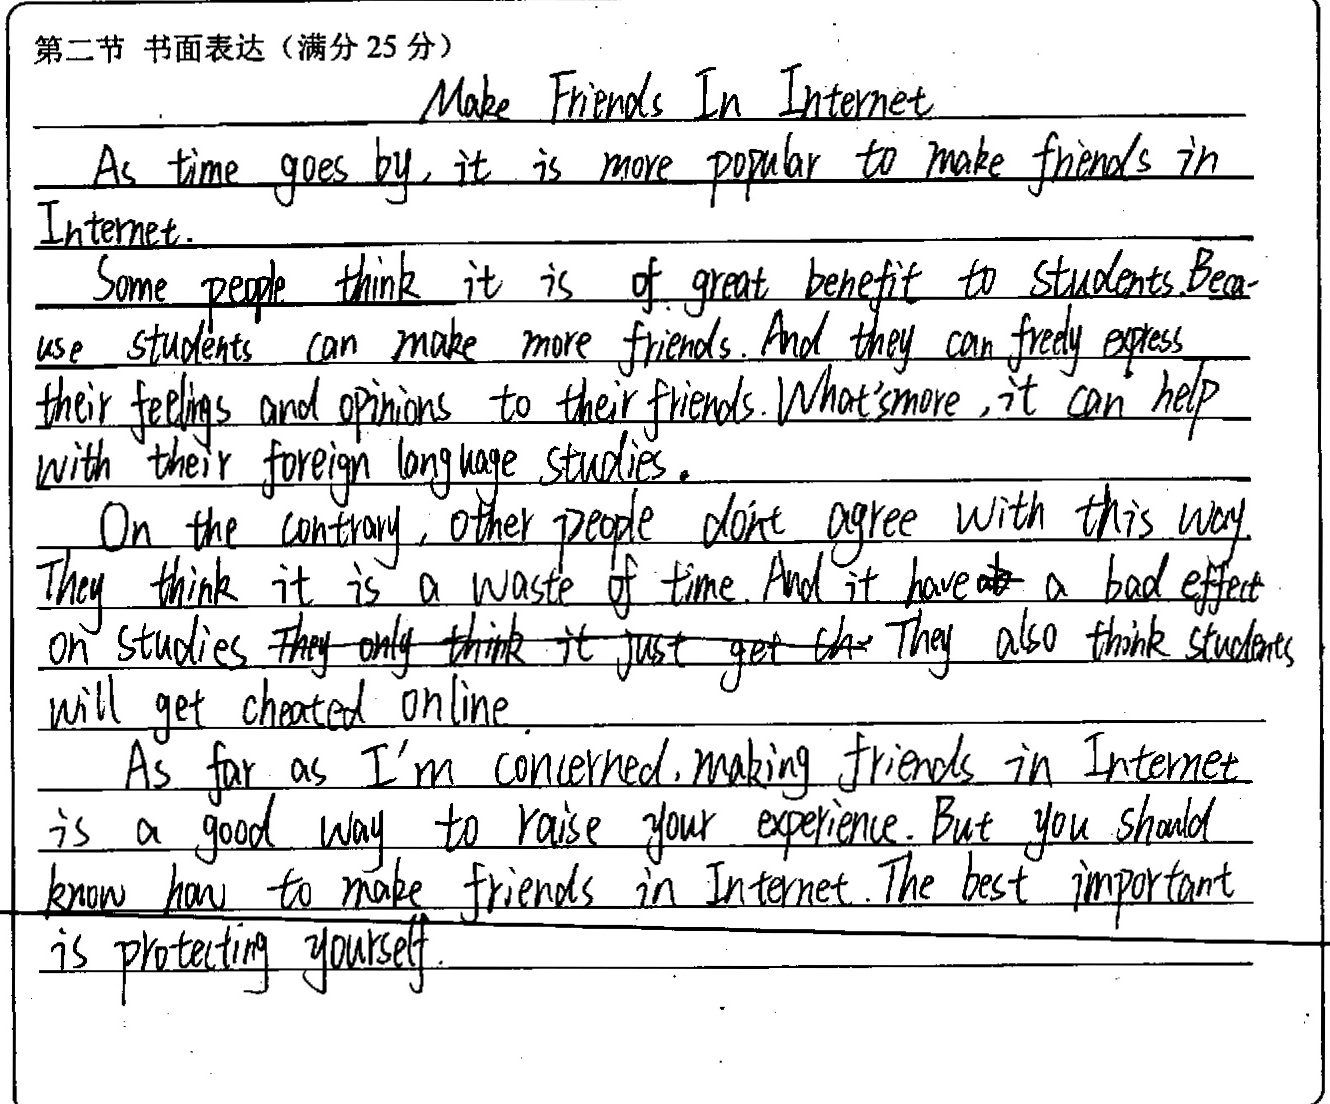 第二节 书面表达（满分 25 分）
Make Friends In Internet
As time goes by, it is more popular to make friends in
Internet.
Some people think it is of great benefit to students. Beca-
use students can make more friends. And they can freely express
their feelings and opinions to their friends. What's more, it can help
with their foreign language studies.
On the contrary, other people don't agree with this way.
They think it is a waste of time. And it have a bad effect
on studies They only think it just get They also think students
will get cheated online
As far as I'm concerned, making friends in Internet
is a good way to raise your experience. But you should
know how to make friends in Internet. The best important
is protecting yourself.